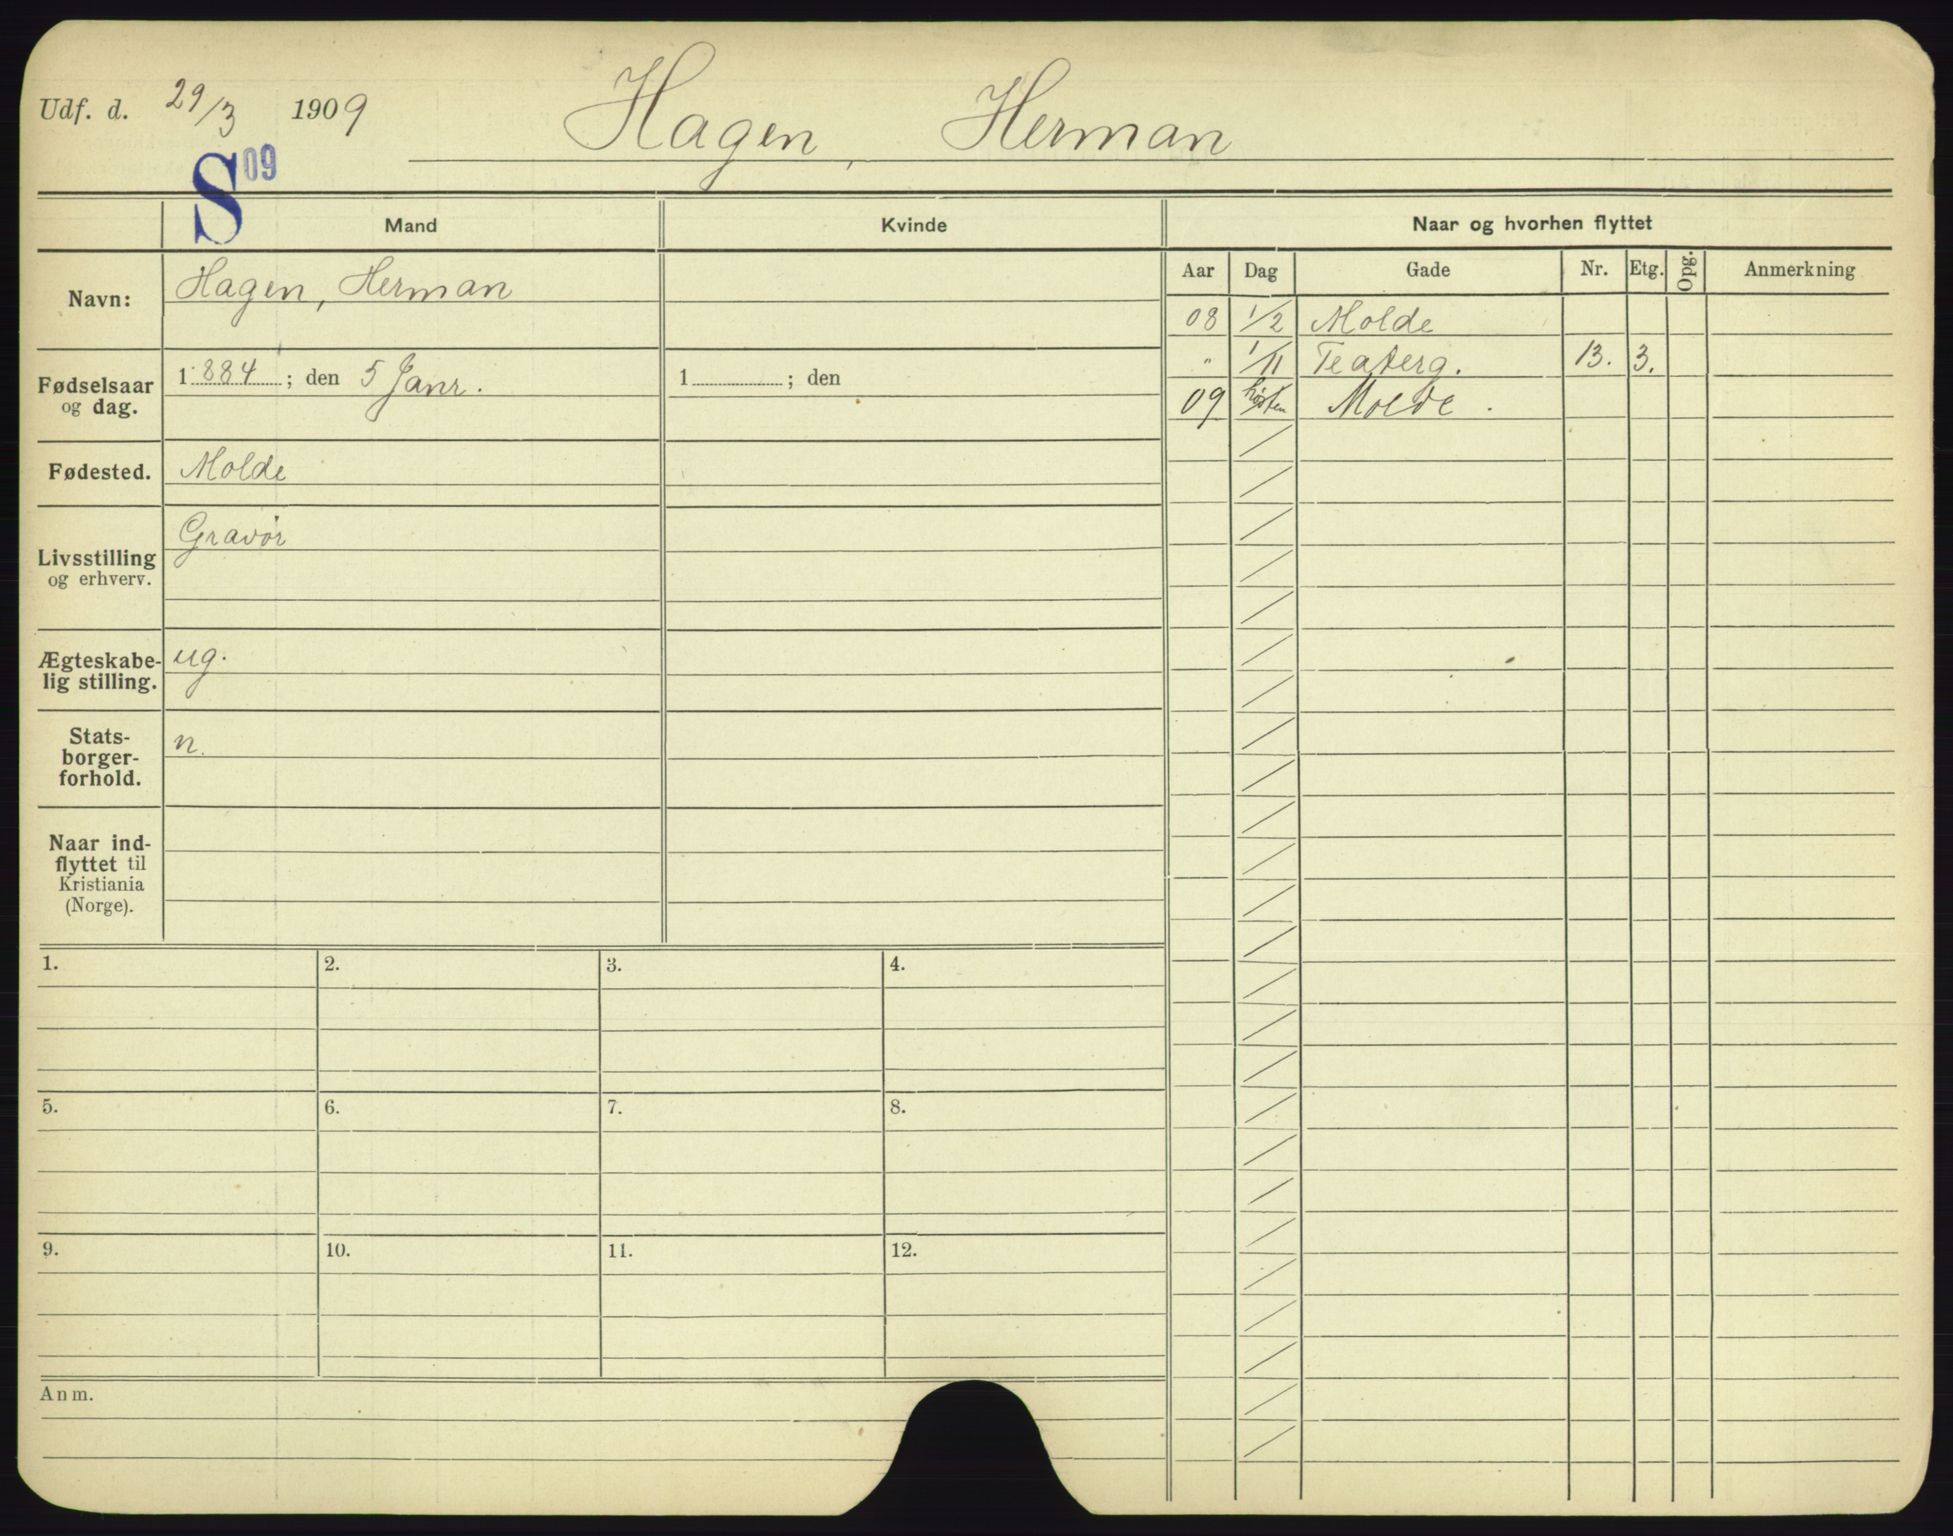 Udf. d. 29/3 1909 Hagen, Herman
S 09
Mand Kvinde Naar og hvorhen flyttet
Aar Dag Gade Nr. Etg. Opg. Anmerkning
Navn: Hagen, Herman
08 1/2 Molde
" 1/11 Teaterg. 13. 3.
09 høsten Molde.
Fødselsaar
og dag.
1884; den 5 Janr. 1; den
Fødested. Molde
Livsstilling
og erhverv.
Gravør
Ægteskabe-
lig stilling.
ug.
Stats-
borger-
forhold.
n.
Naar ind-
flyttet til
Kristiania
(Norge).
1. 2. 3. 4.
5. 6. 7. 8.
9. 10. 11. 12.
Anm.